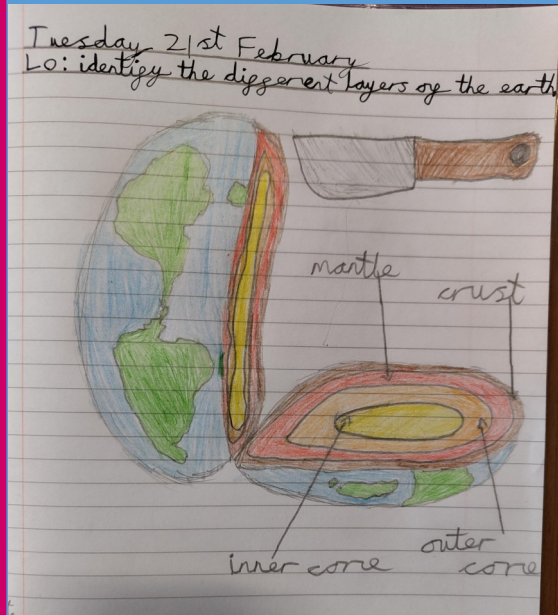 Tuesday 21st February
LO: identify the different layers of the earth
mantle
crust
inner core
outer
core